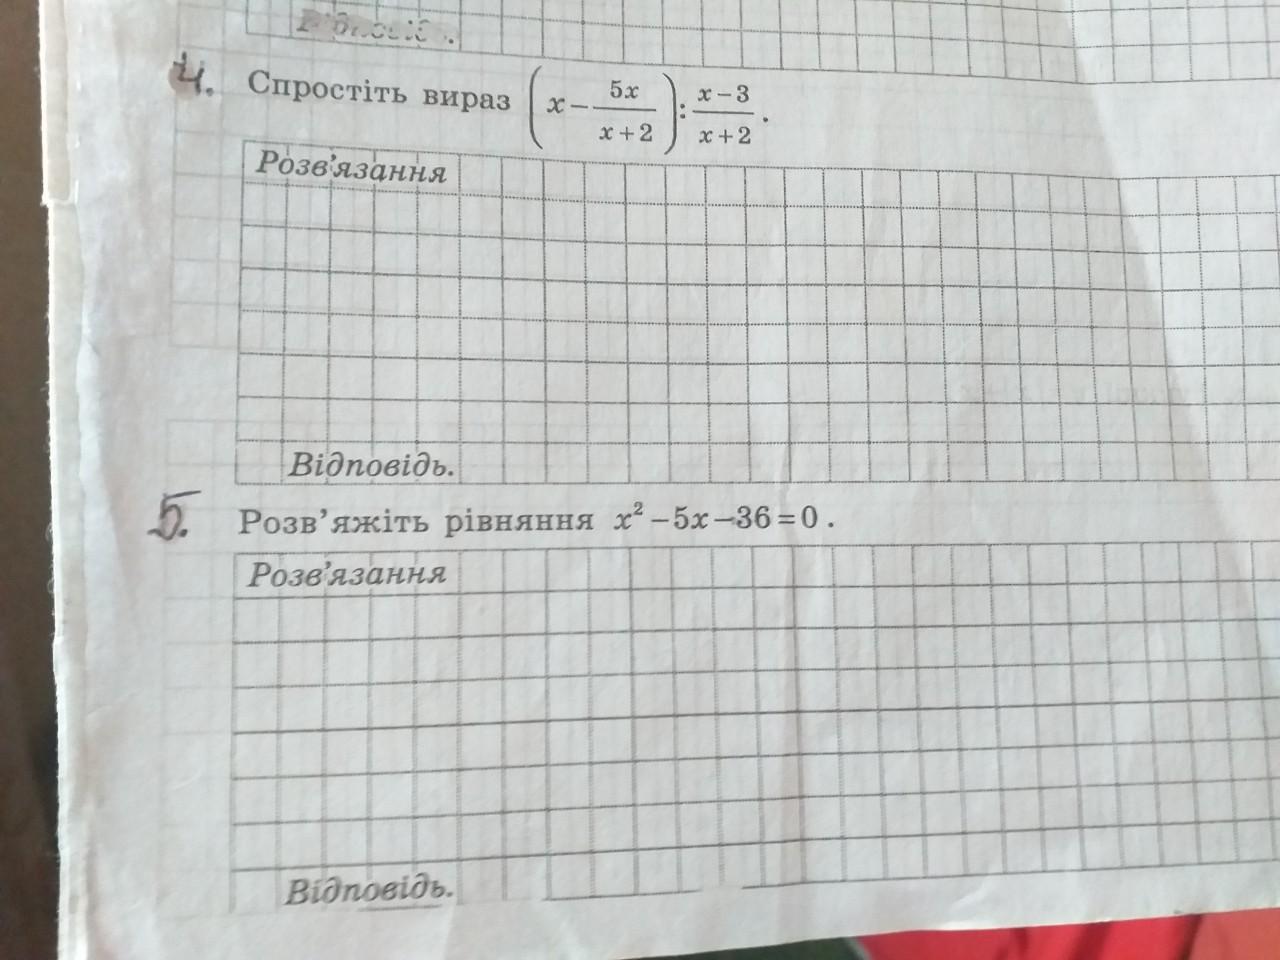 4. Спростіть вираз (x − 5x/(x+2)) : (x−3)/(x+2).
Розв'язання
Відповідь.
5. Розв'яжіть рівняння x² − 5x − 36 = 0.
Розв'язання
Відповідь.